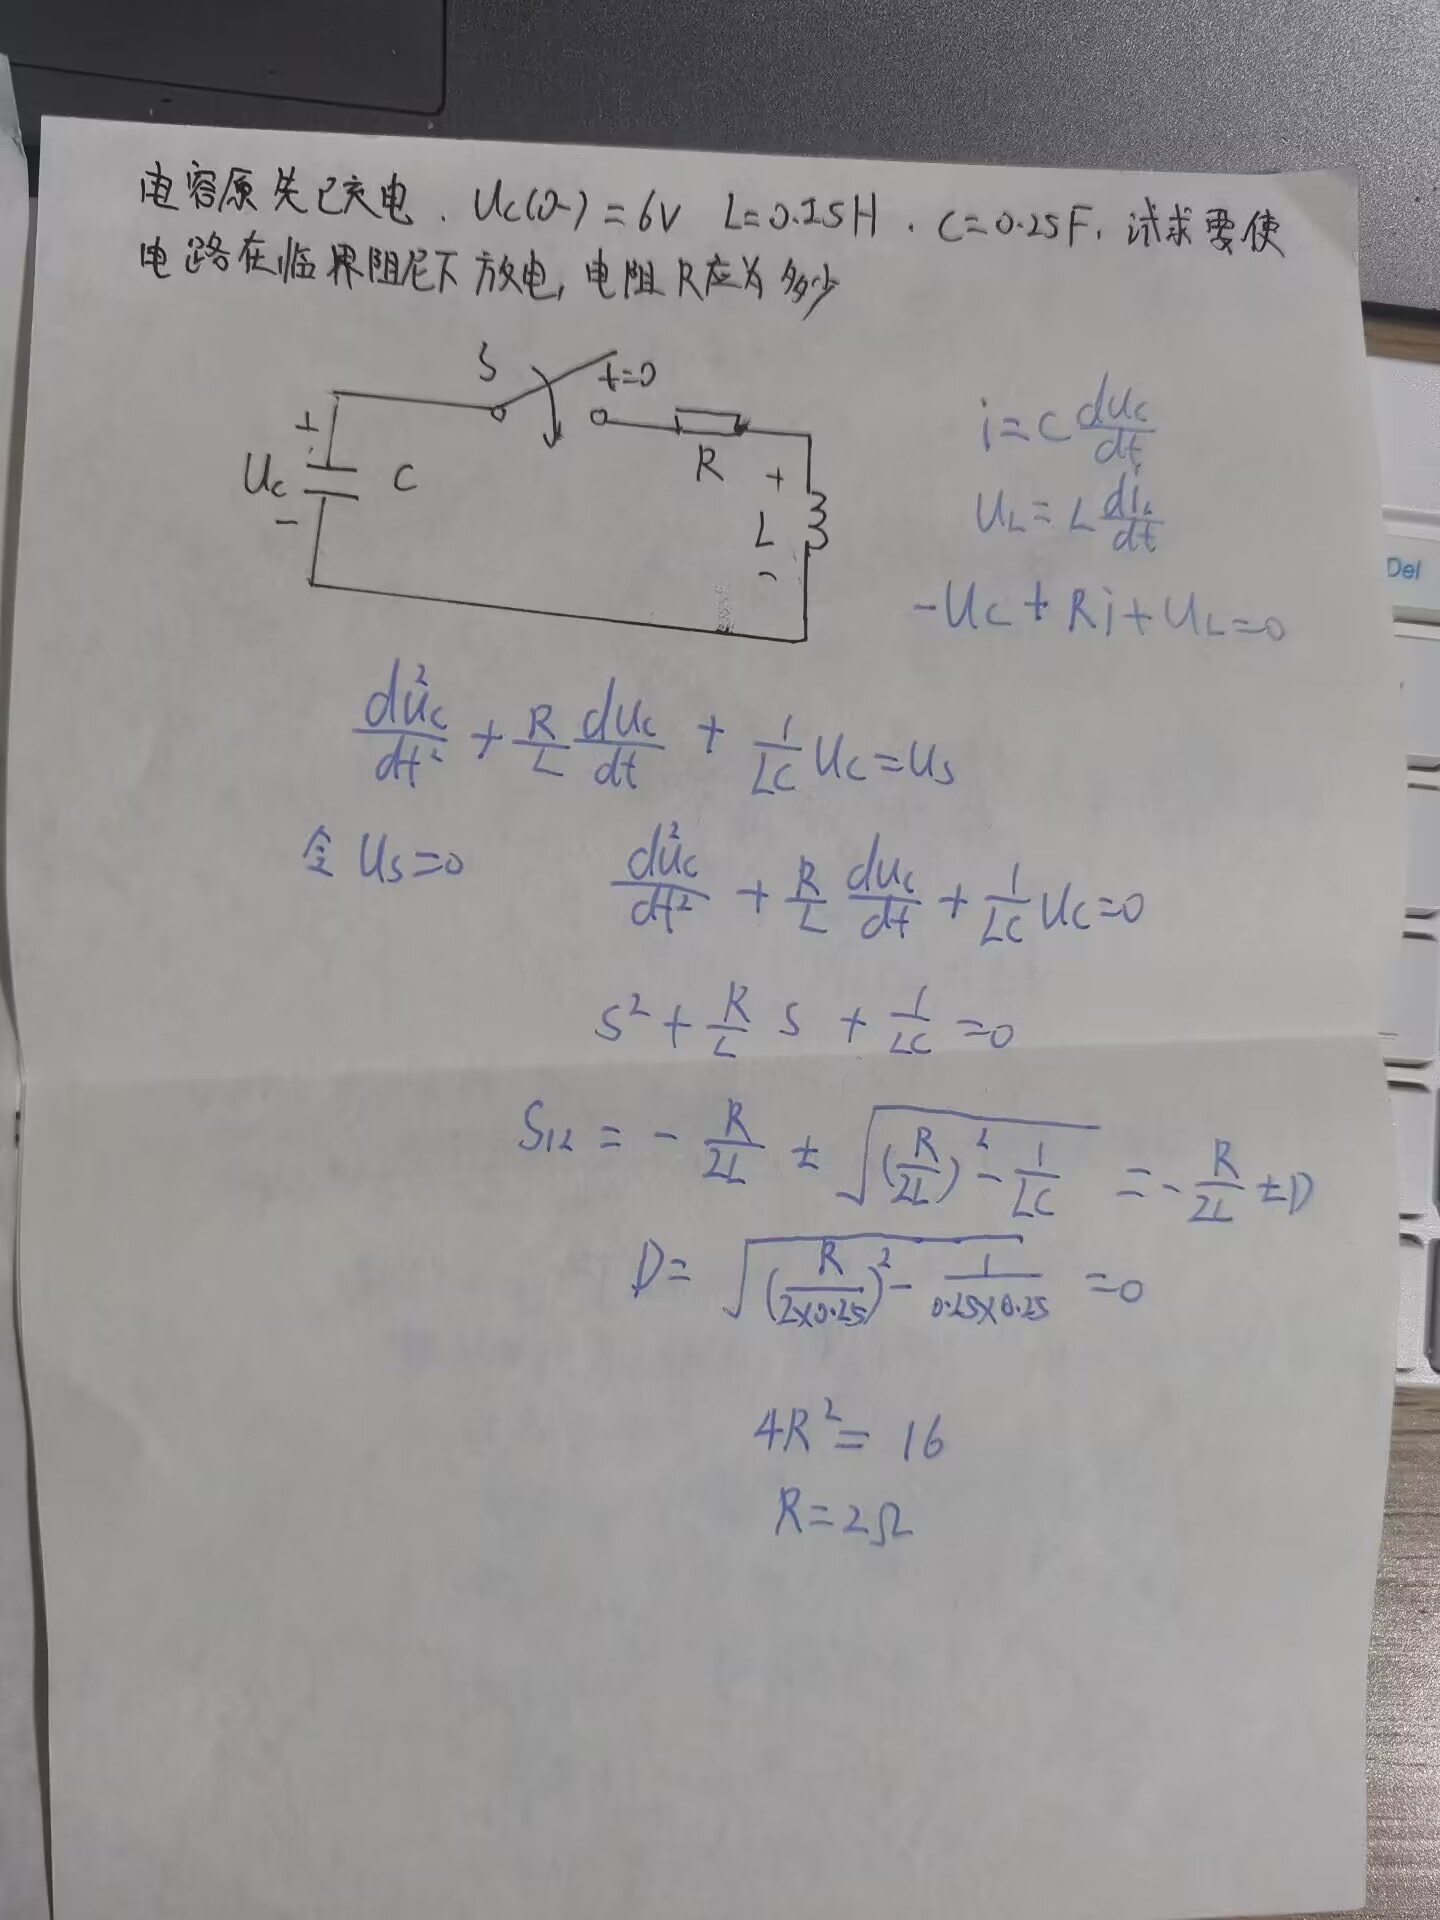 电容原先已充电. Uc(0-)=6V L=0.25H. C=0.25F, 试求要使
电路在临界阻尼下放电, 电阻R应为多少
S t=0
+
Uc C
-
R
+
L
-
i=C duc/dt
UL=L diL/dt
-Uc+Ri+UL=0
d²uc/dt² + R/L duc/dt + 1/LC Uc=Us
令 Us=0 d²uc/dt² + R/L duc/dt + 1/LC Uc=0
S² + R/L S + 1/LC =0
S12 = - R/2L ± √((R/2L)² - 1/LC) = - R/2L ±D
D= √((R/2×0.25)² - 1/0.25×0.25) =0
4R²= 16
R=2Ω
Del